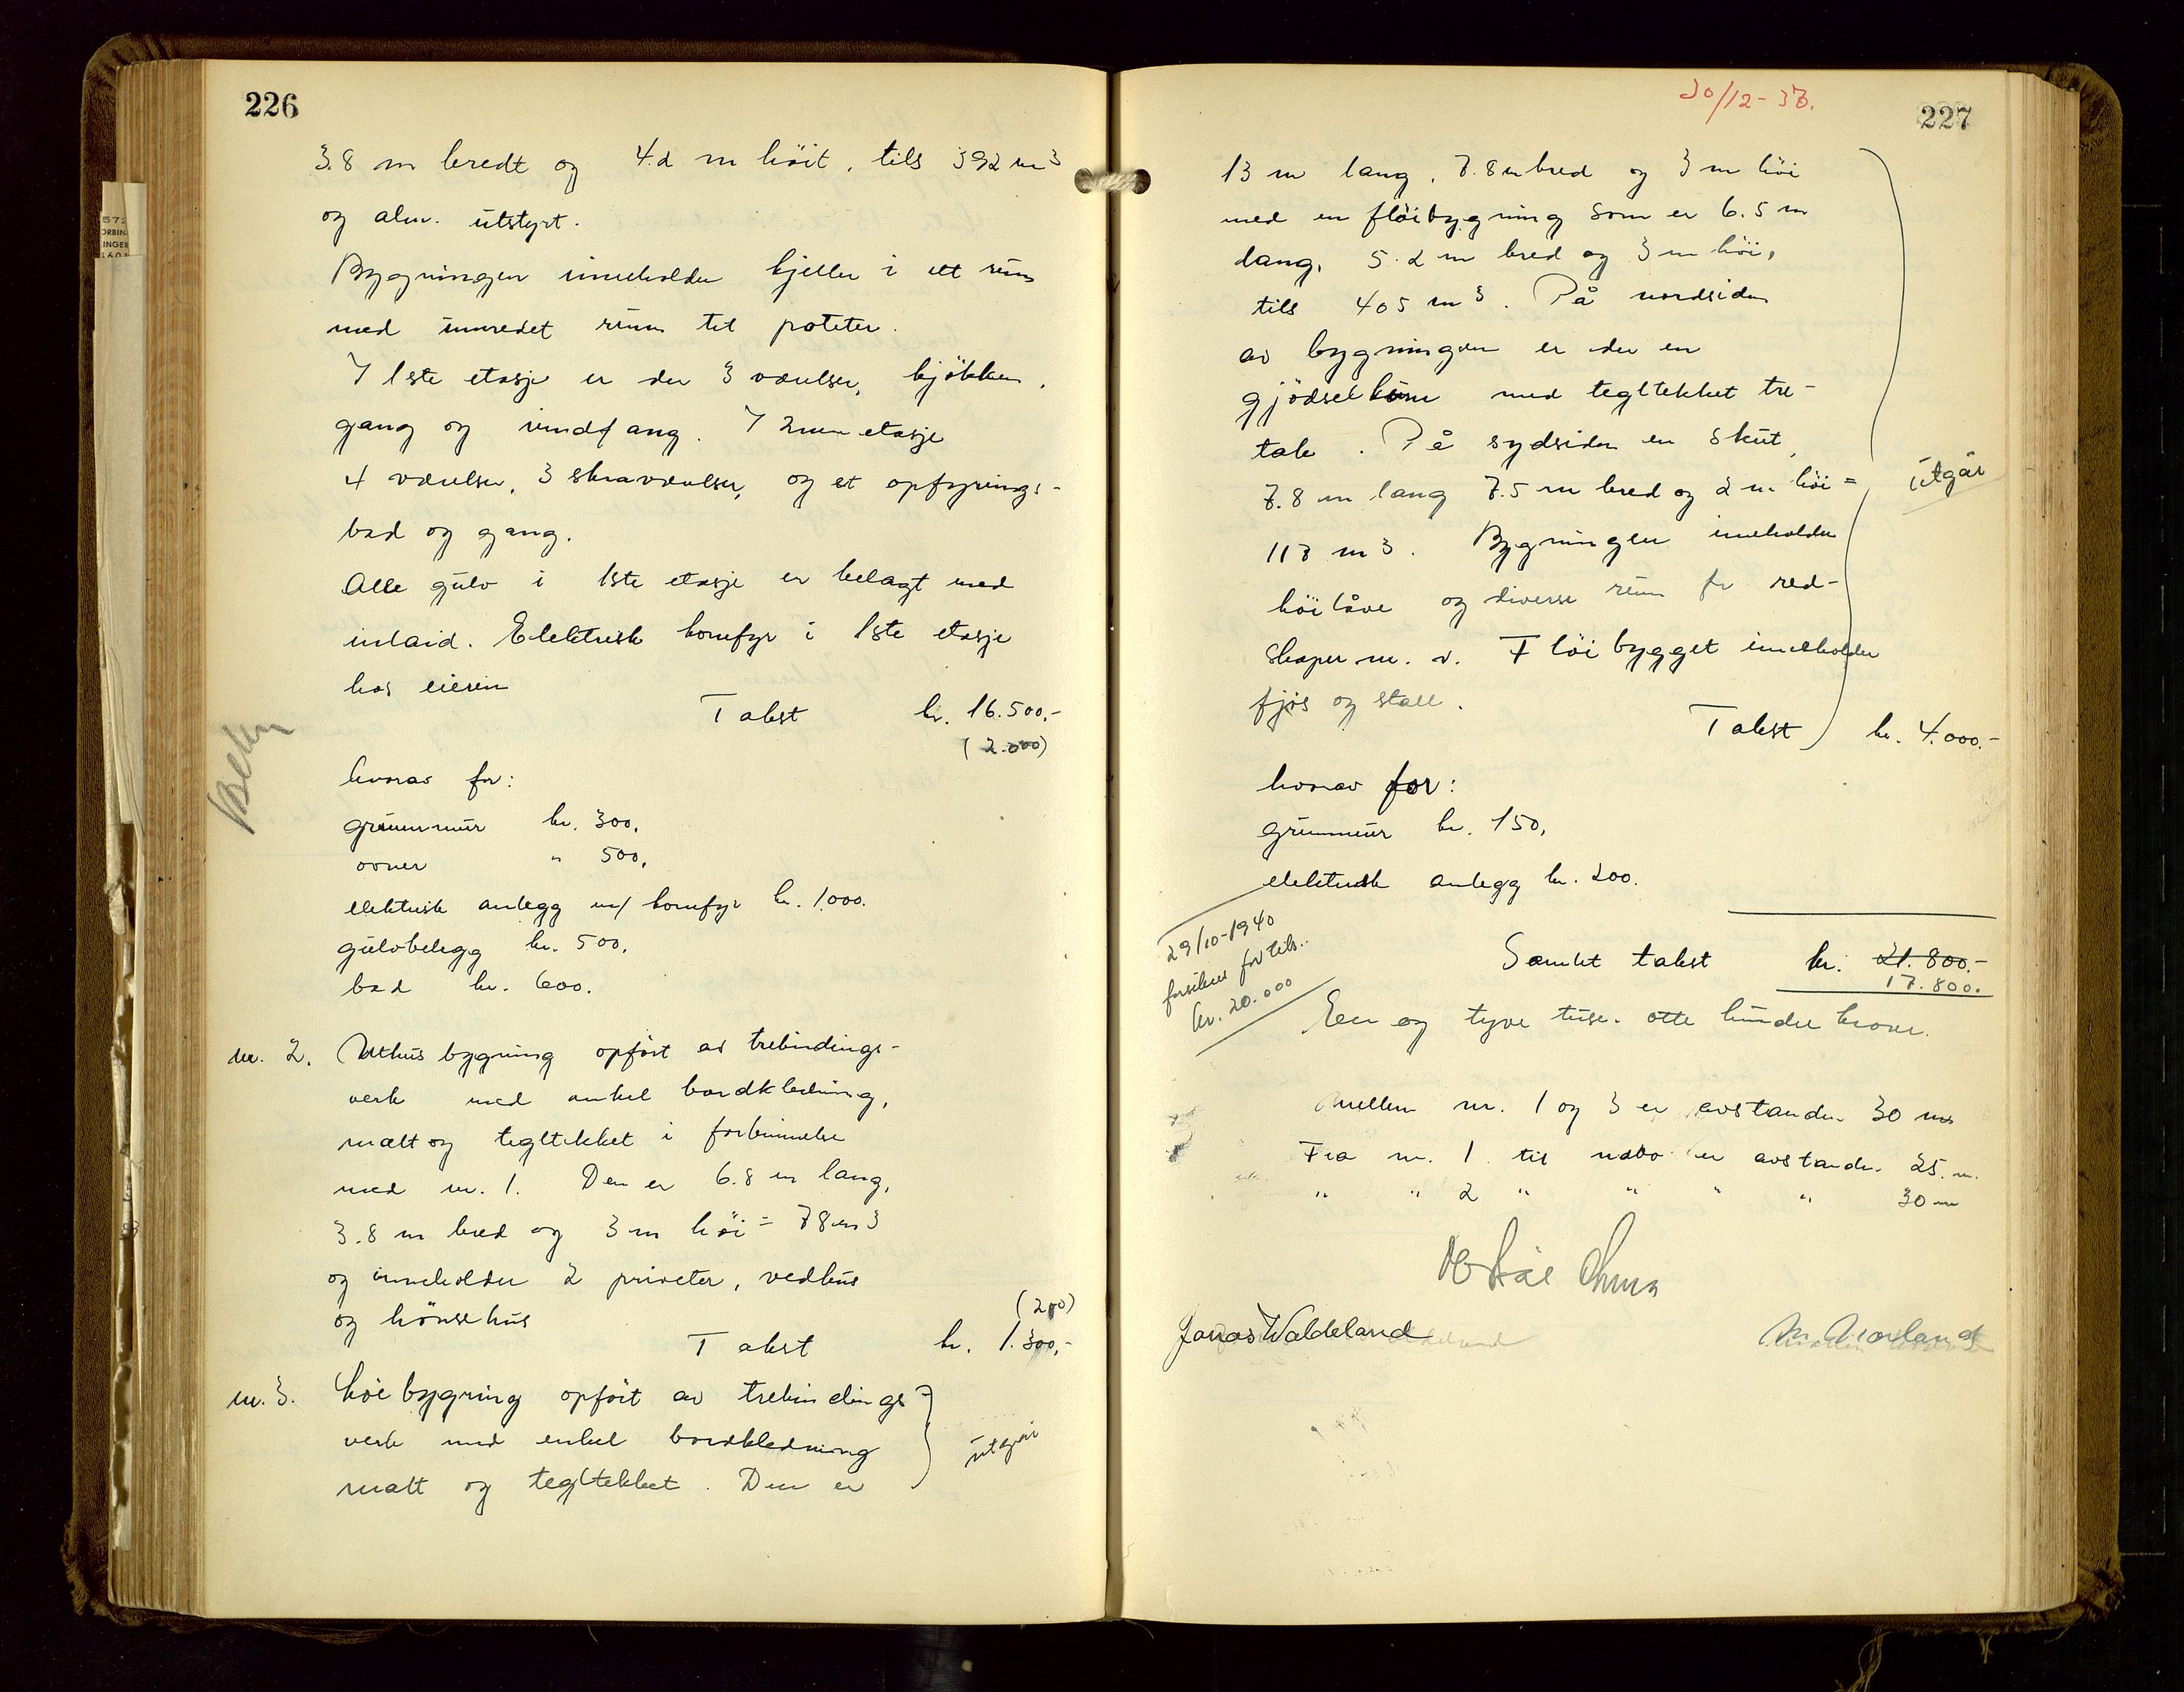 226
3.8 m bredt og 4.2 m höit, tils 392 m3
og alm. utstyrt.
Bygningen inneholder kjeller i ett rum
med innredet rum til poteter.
I 1ste etasje er der 3 værelser, kjökken,
gang og vindfang. I 2nen etasje
4 værelser, 3 skraværelser, og et opfyrings-
bad og gang.
Alle gulv i 1ste etasje er belagt med
inlaid. Elektrisk komfyr i 1ste etasje
hos eieren
Takst kr. 16.500.-
(2.000)
hvorav for:
grunnmur kr. 300.
ovner " 500.
elektrisk anlegg m/ komfyr kr. 1.000.
gulvbelegg kr. 500.
bad kr. 600.
nr. 2. Uthusbygning opfört av trebindings-
verk med enkel bordkledning,
malt og tegltekket i forbinnelse
med nr. 1. Den er 6.8 m lang,
3.8 m bred og 3 m höi = 78 m3
og inneholder 2 priveter, vedhus
og hönsehus
(200)
Takst kr. 1.300.-
nr. 3. Löebygning opfört av trebindings-
verk med enkel bordkledning
malt og tegltekket. Den er
utgår
30/12-37.
227
13 m lang, 7.8 m bred og 3 m höi
med en flöibygning som er 6.5 m
lang, 5.2 m bred og 3 m höi,
tils 405 m3. På nordsiden
av bygningen er der en
gjödselkum med tegltekket tre-
tak. På sydsiden en skut,
7.8 m lang 7.5 m bred og 2 m höi =
117 m3. Bygningen inneholder
höilåve og diverse rum for red-
skaper m. v. Flöibygget inneholder
fjös og stall.
utgår
Takst kr. 4.000.-
hvorav for:
grunnmur kr. 150.
elektrisk anlegg kr. 200.
29/10-1940
forsikres for tils.
kr. 20.000
Samlet takst kr. 21.800.-
17.800.
En og tyve tuse. otte hundre kroner.
Mellem nr. 1 og 3 er avstanden 30 m
Fra nr. 1 til nabo er avstanden 25 m.
" " 2 " " " " 30 m
Jonas Waldeland